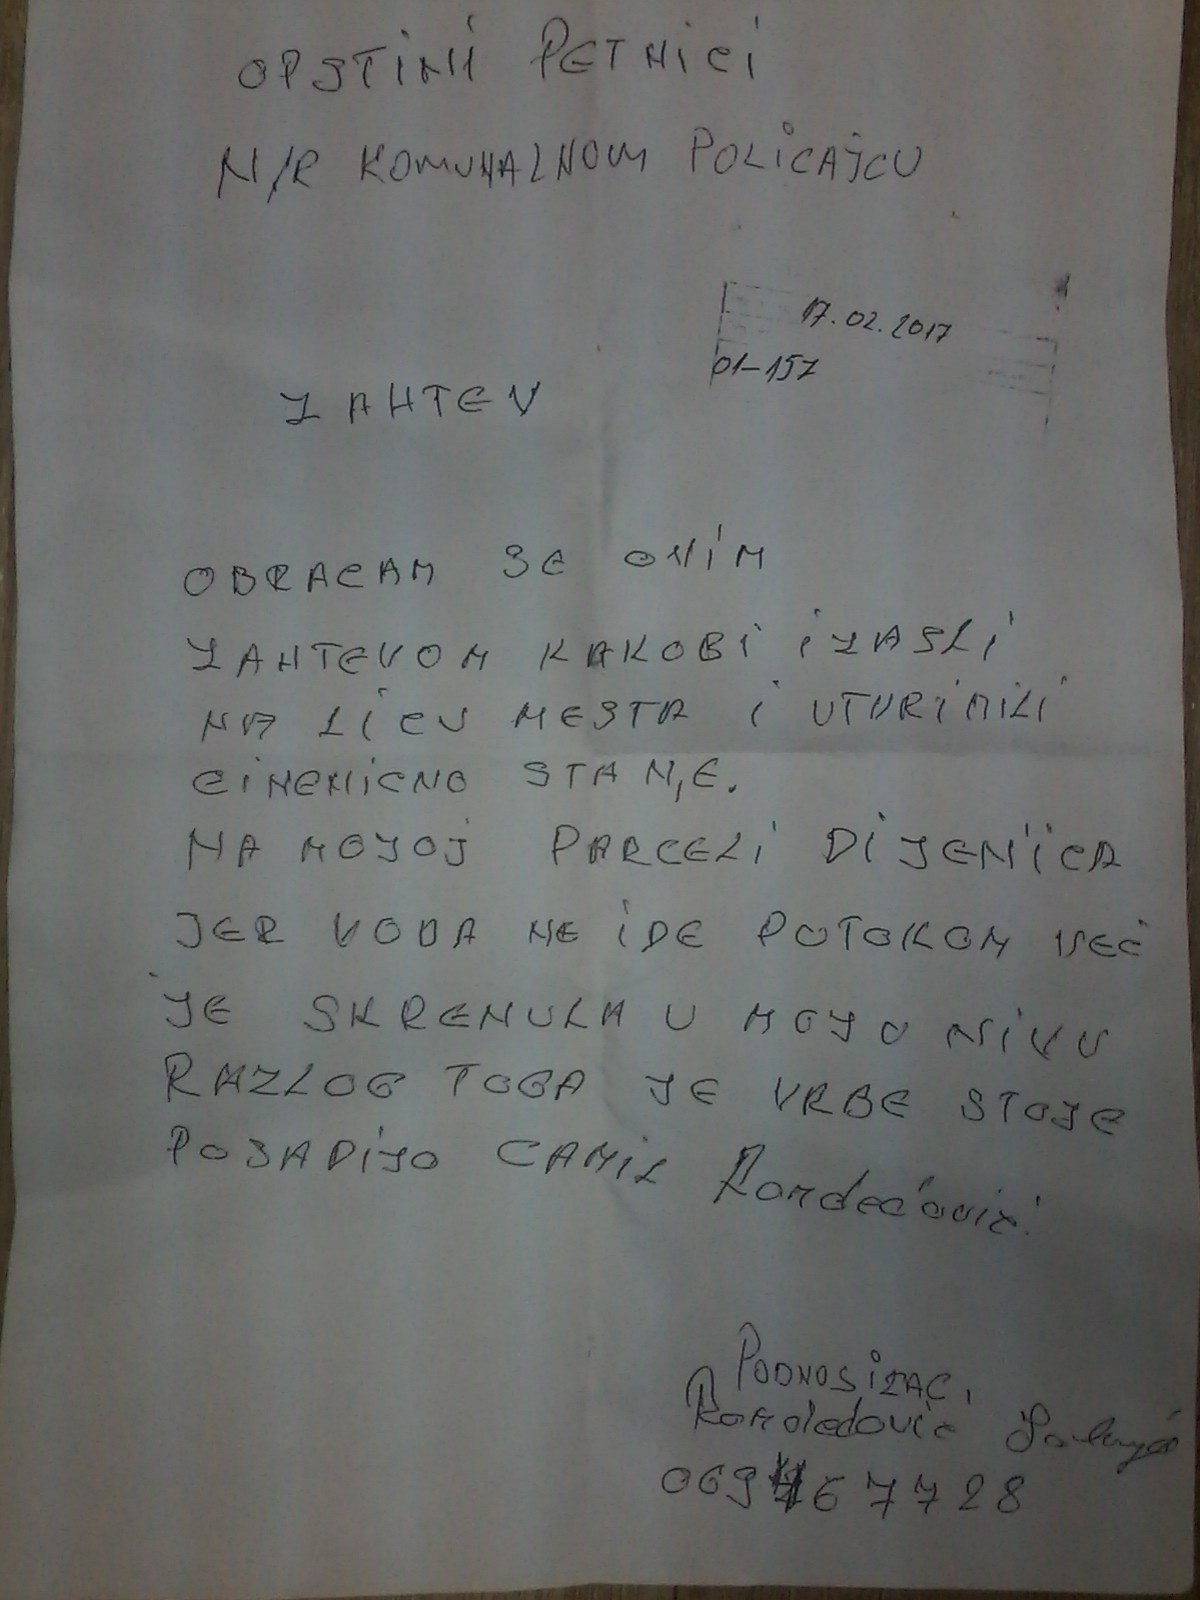 OPSTINI PETNICI
N/R KOMUNALNOM POLICAJCU
17.02.2017
01-157
ZAHTEV
OBRACAM SE OVIM
ZAHTEVOM KAKOBI IZASLI
NA LICU MESTA I UTVRIMILI
CINENICNO STANJE.
NA MOJOJ PARCELI DIJENICA
JER VODA NE IDE POTOKOM VEĆ
JE SKRENULA U MOJU NIVU
RAZLOG TOGA JE VRBE STOJE
POSADIJO CAMIL
PODNOSILAC,